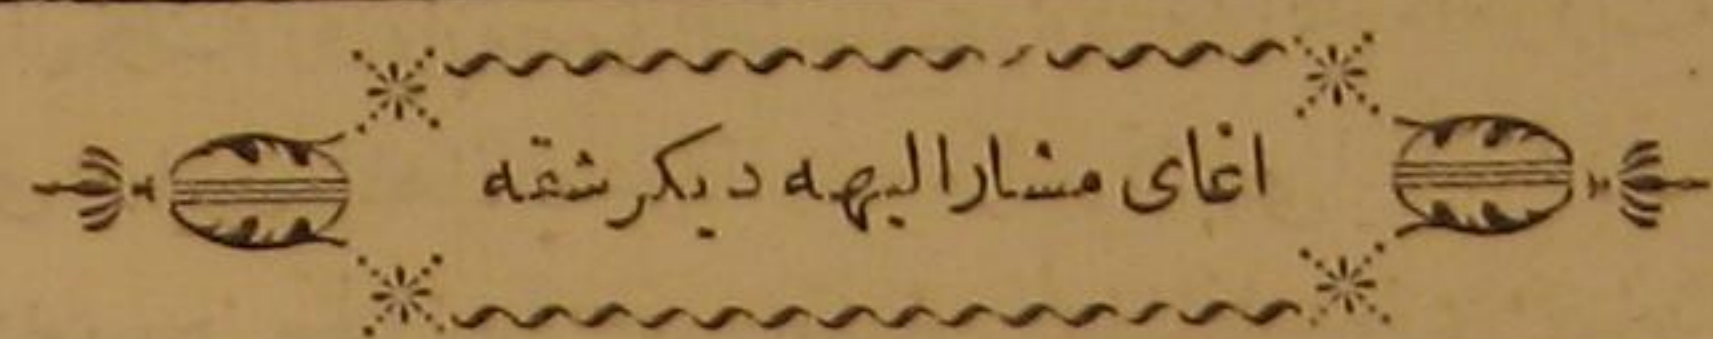 اغای مشارالیهه دیکر شقه